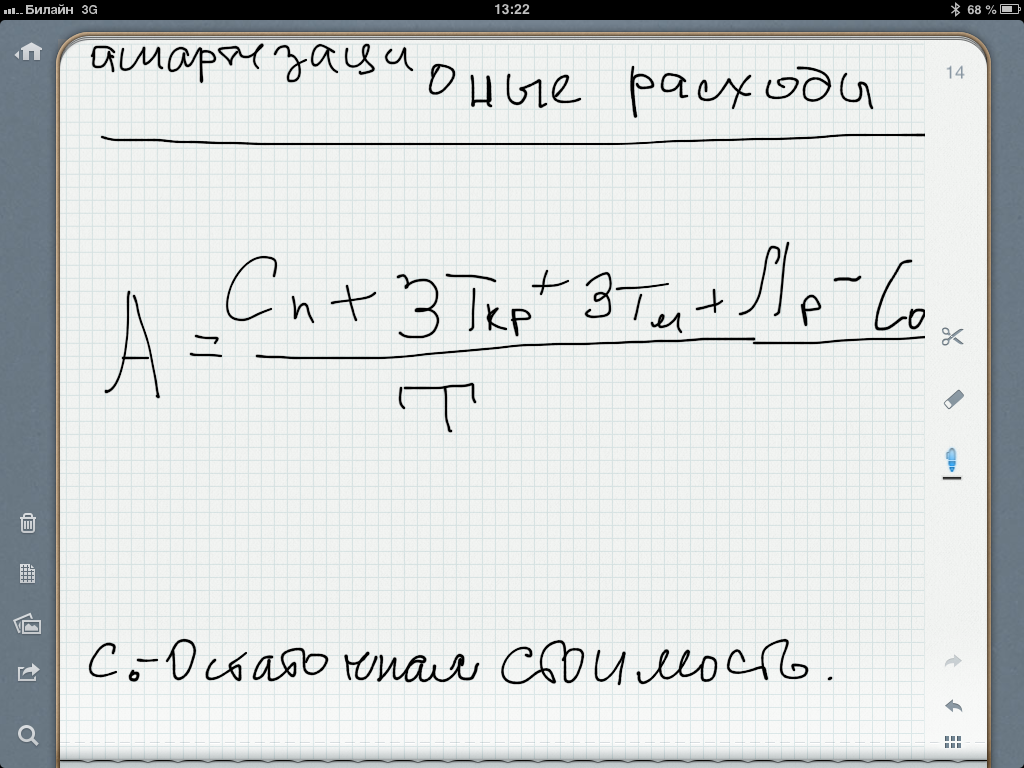 Билайн 3G 13:22 68 %
амортизаци
онные расходы
14
A = Cп + ЗТкр + ЗТм + Лр - Со
T
Со - Остаточная стоимость.